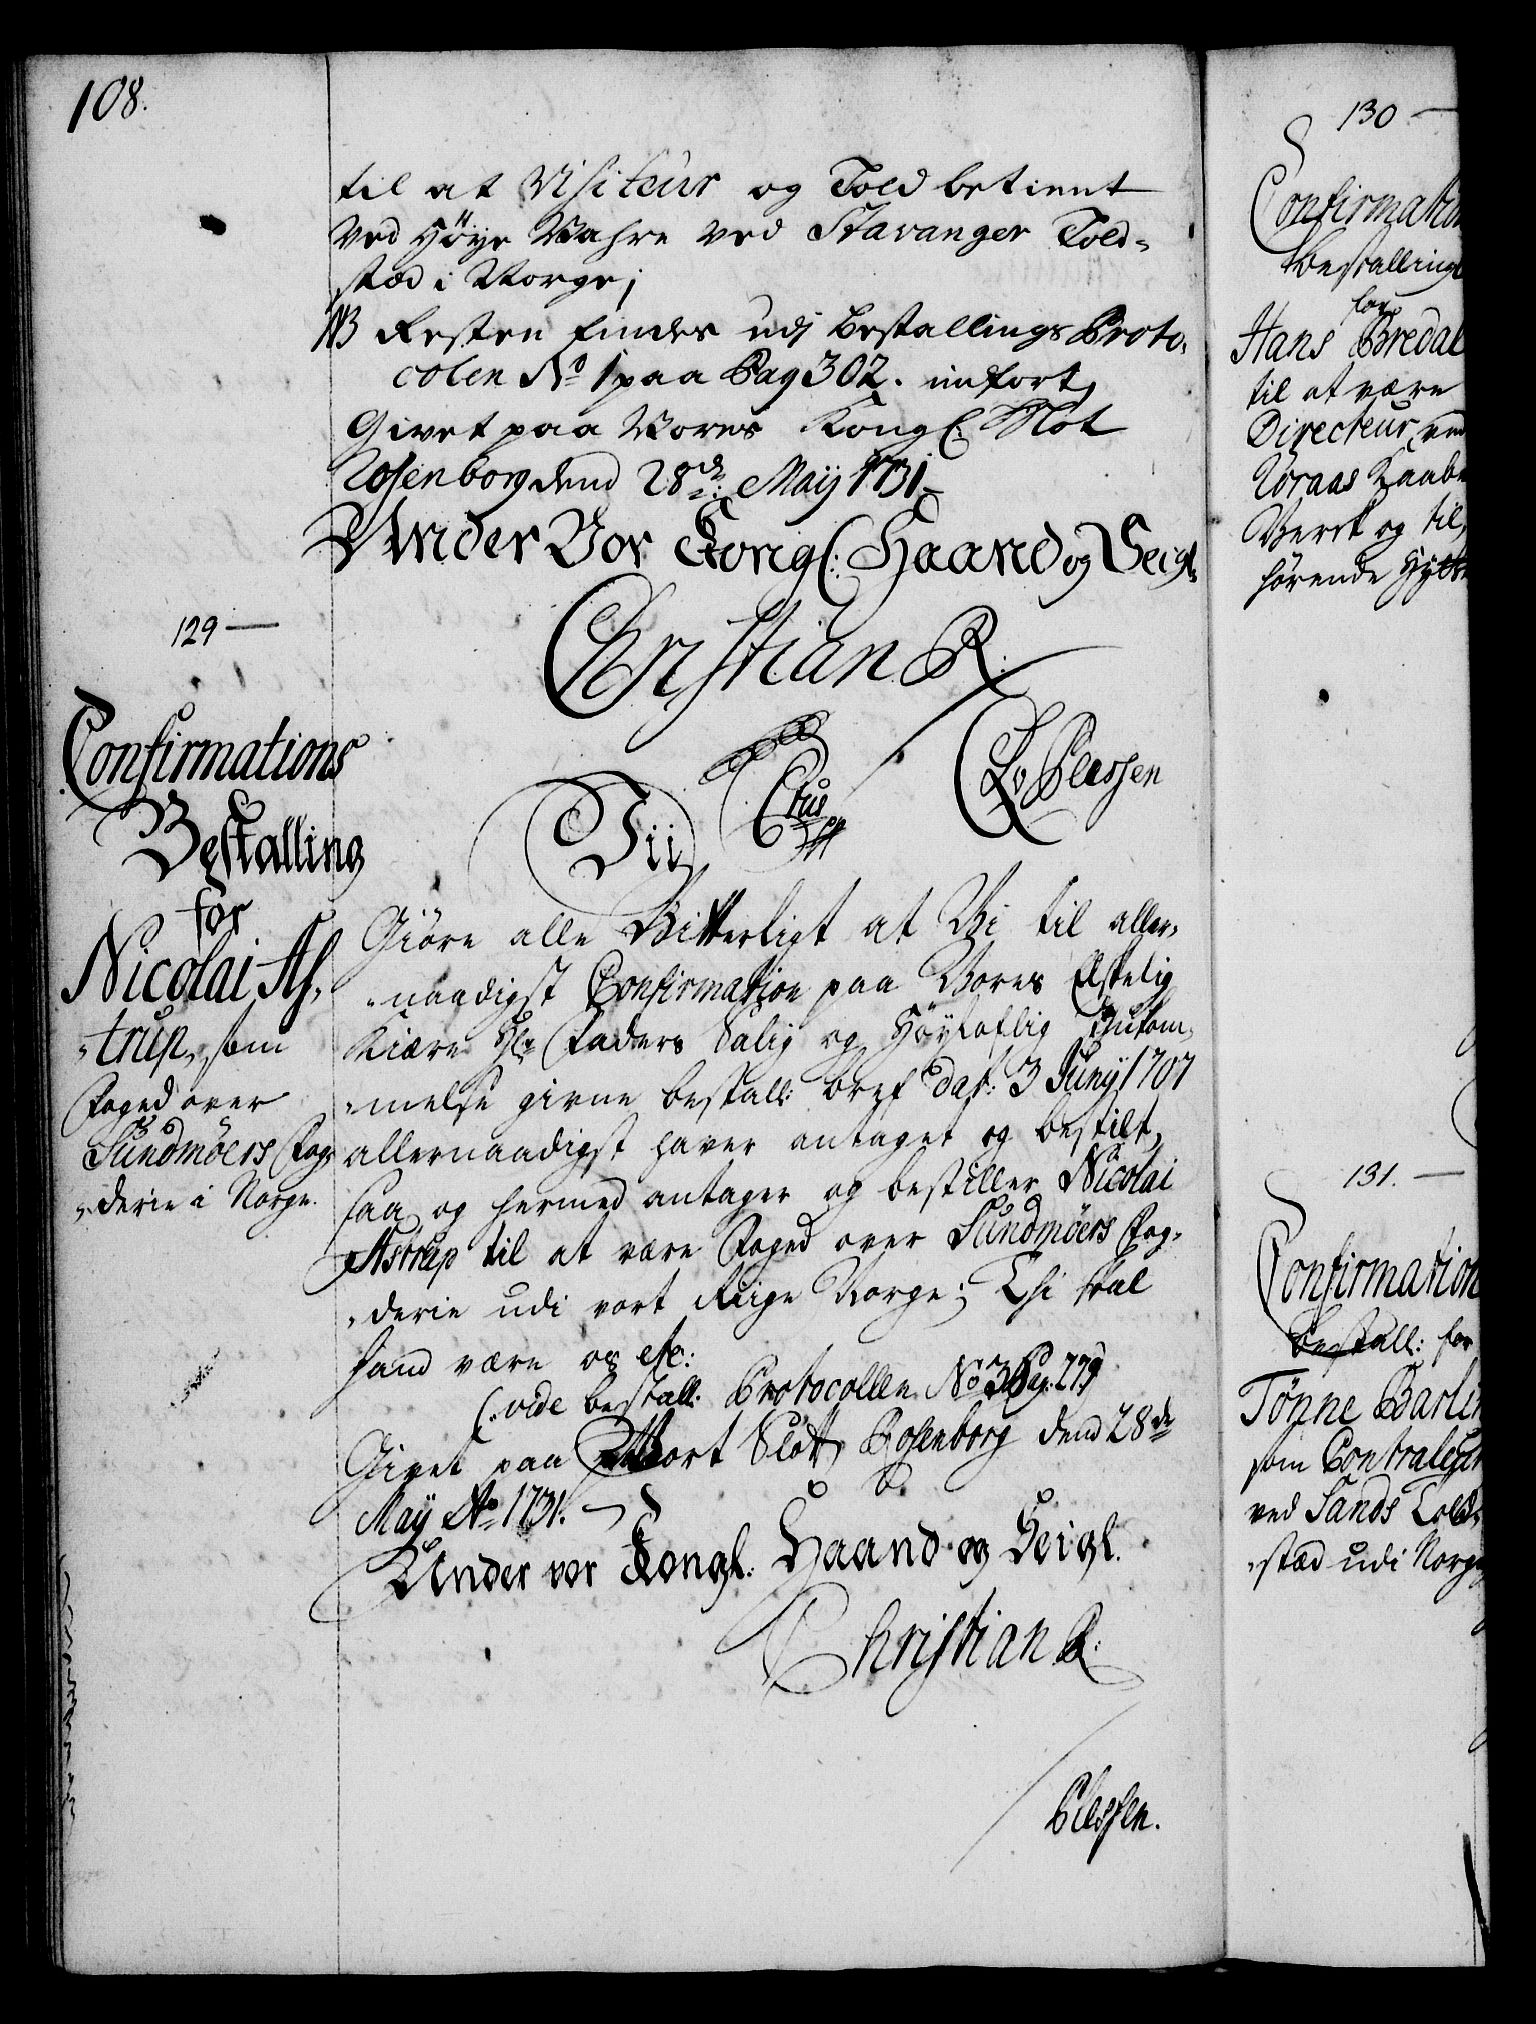 108.
til at Visiteur og Told betient
ved Höye Wahre ved Stavanger Told-
stæd i Norge;
NB Resten findes udi Bestallings Proto-
colen No 1 paa Pag 302. indfört,
Givet paa Vores Kongl: Slot
Rosenborg dend 28de May 1731
Under Vor Kongl: Haand og Seigl.
Christian R.
CLv Plessen
129
Confirmations
Bestalling
for
Nicolai As-
trup, som
Foged over
Sundmöers Fog-
derie i Norge.
Ctus
Vii
Giöre alle Vitterligt at Vi til aller-
naadigst Confirmation paa Vores Elskelig
Kiære Hr Faders Salig og Höyloflig Ihukom-
melse givne bestall: bref dat: 3 Juny 1707
allernaadigst haver antaget og bestilt,
saa og hermed antager og bestiller Nicolai
Astrup til at være Foged over Sundmöers Fog-
derie udi vort Riige Norge; Thi skal
hand være os etc:
(: vide bestall: Protocollen No 3 Pag: 279
Givet paa Vort Slott Rosenborg dend 28de
May Ao 1731.
Under vor Kongl: Haand og Seigl.
Christian R:
Plessen.
130
Confirmation
bestalling
for
Hans Bredal
til at være
Directeur ved
Röraas Kaaber
Verck og til-
hörende Hytte
131.
Confirmation
bestall: for
Tönne Barlin
som Contraleur
ved Sands Told-
stæd udi Norge